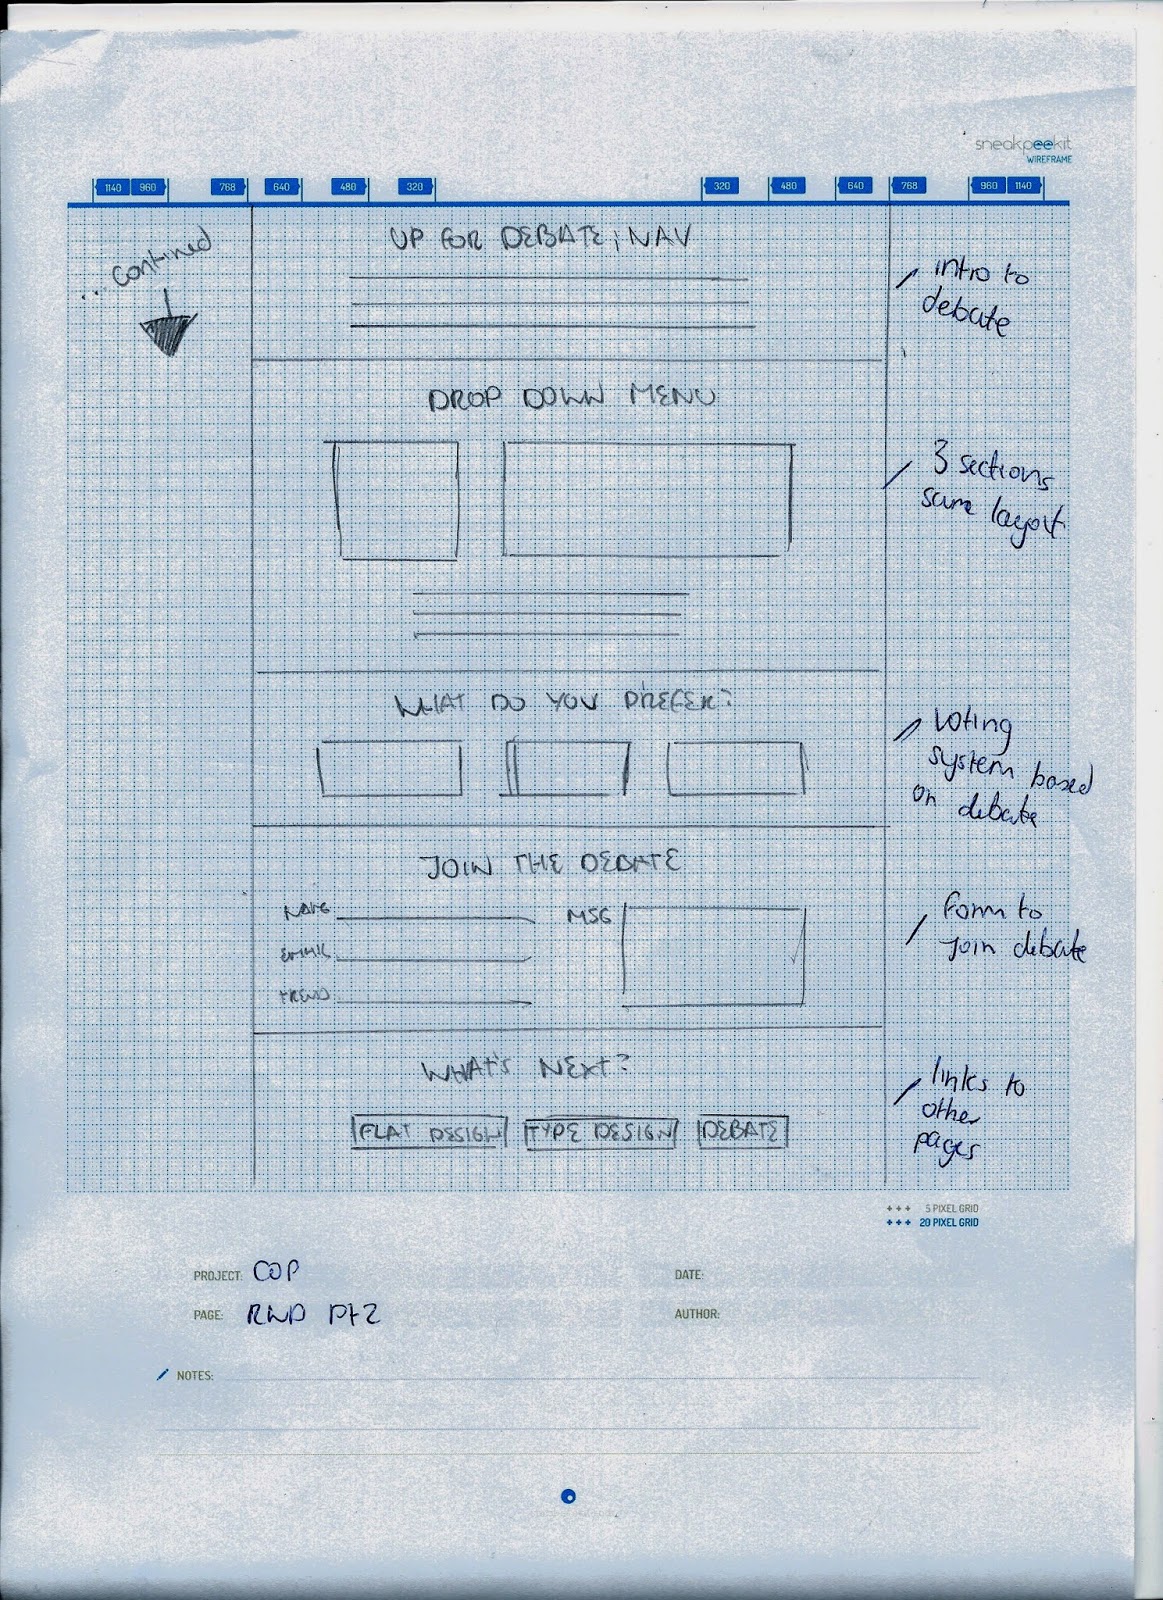 sneakpeekit
WIREFRAME
1140 960 768 640 480 320 320 480 640 768 960 1140
... contined
UP FOR DEBATE; NAV
intro to
debate
DROP DOWN MENU
3 sections
same layout
WHAT DO YOU PREFER?
Voting
system based
on debate
JOIN THE DEBATE
NAME
EMAIL
TREND
MSG
Form to
Join debate
WHAT'S NEXT?
FLAT DESIGN TYPE DESIGN DEBATE
links to
other
pages
+++ 5 PIXEL GRID
+++ 20 PIXEL GRID
PROJECT: COP
DATE:
PAGE: RWD Pt2
AUTHOR:
NOTES: